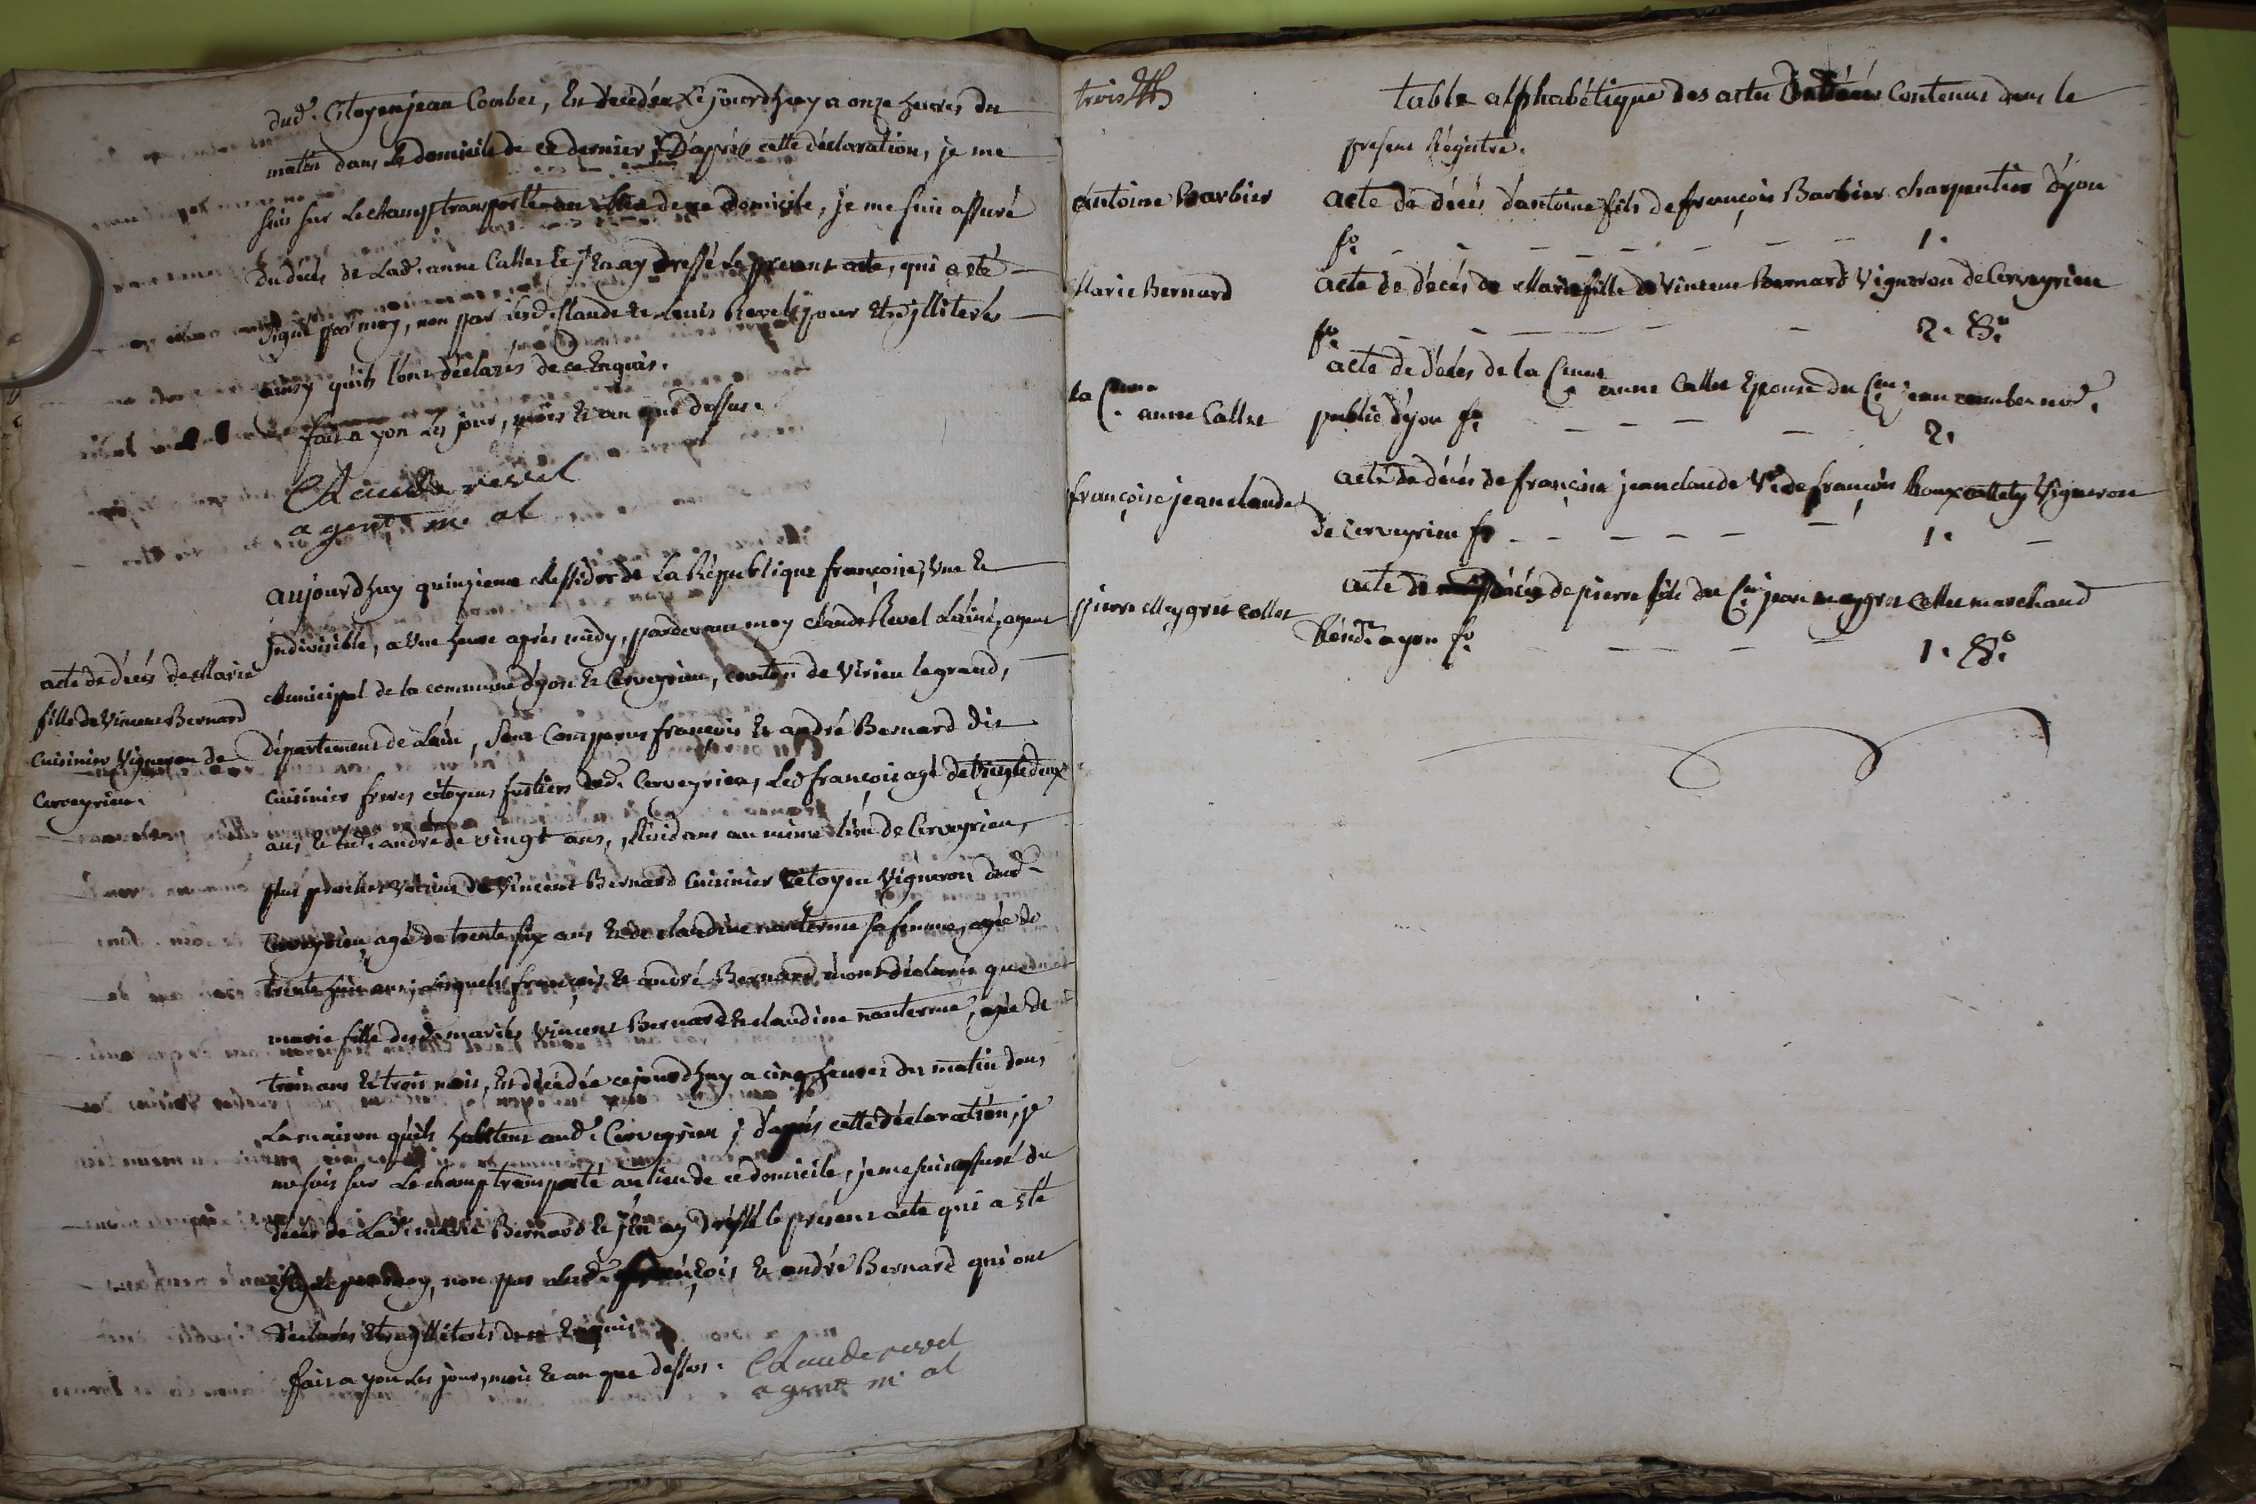 dud. Citoyen jean Combet, Est décédée Ce jourd'huy a onze heures du
matin dans le domicile de ce dernier ; D'après cette déclaration, je me
suis sur le champ transporté au lieu de ce domicile, je me suis assuré
du décès de Lad. anne Callet Et j'En ay dressé Le présent acte, qui a été
signé par moy, non par Lesd. Claude Et Louis Revel pour Etre illiterés
ainsy qu'ils l'ont déclarés de ce Enquis.
fait a yon Les jour, mois Et an que dessus.
Claude revel
agent m. al
aujourd'huy quinzieme Messidor de La République françoise, Une Et
Indivisible, a Une heure après midy, pardevant moy Claude Revel L'ainé, agent
Municipal de la commune d'yon Et Cerveyrieu, canton de Virieu legrand,
acte de décès de Marie
fille de Vincent Bernard
Cuisinier Vigneron de
Cerveyrieu.
département de L'ain, Sont Comparus françois Et andré Bernard dit
Cuisinier freres citoyens fustiers dud. Cerveyrieu, Led françois agé de Vingt deux
ans, Et led. andré de vingt ans, Résidans au même lieu de Cerveyrieu,
plus proches voisins de Vincent Bernard Cuisinier Citoyen Vigneron dud.
Cerveyrieu agé de trente six ans Et de claudine nanterme sa femme, agée de
trente huit ans, Lesquels françois Et andré Bernard m'ont déclarés que
marie fille desd. mariés Vincent Bernard Et claudine nanterme, agée de
trois ans Et trois mois, Est décédée cejourd'huy a cinq heures du matin dans
La maison qu'ils habitent aud. Cerveyrieu ; d'après cette déclaration, je
me suis sur Le champ transporté au lieu de ce domicile, je me suis assuré du
décès de Lad. marie Bernard Et j'En ay dressé le présent acte qui a été
signé par moy, non par lesd. françois Et andré Bernard qui ont
déclarés Etre illiterés de ce Enquis
fait a yon Les jour, mois Et an que dessus. Claude revel
agent m. al
trois
table alphabétique des actes de décès Contenus dans le
present Régistre.
Antoine Barbier acte de décès d'antoine fils de françois Barbier charpentier d'yon
fo. 1.
Marie Bernard acte de décès de Marie fille de Vincent Bernard Vigneron de Cerveyrieu
fo. 2. Vo.
la Cenne anne Callet acte de décès de la Cenne anne Callet Epouse du Cen jean combet nore.
public d'yon fo. 2.
françoise jeanclaude acte de décès de françoise jeanclaude Ve de françois Vigneron
de Cerveyrieu fo 1.
pierre Meygret collet acte de décès de pierre fils du Cen jean meygret Collet marchand
Résidt. a yon fo. 1. Vo.